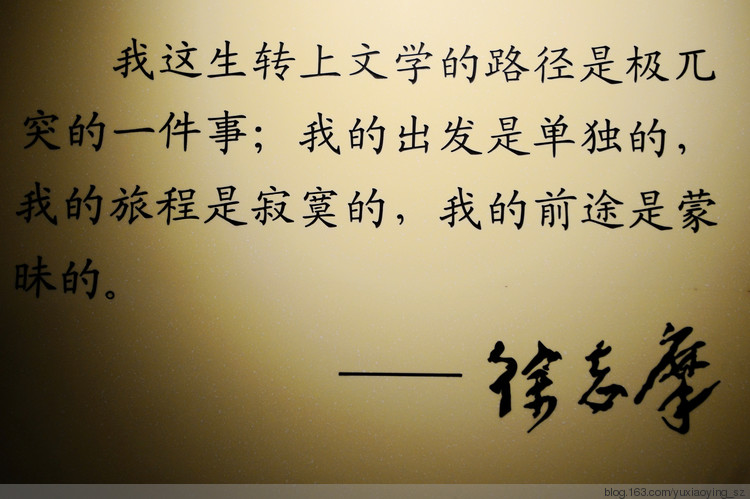 我这生转上文学的路径是极兀
突的一件事；我的出发是单独的，
我的旅程是寂寞的，我的前途是蒙
昧的。
——徐志摩
blog.163.com/yuxiaoying_sz